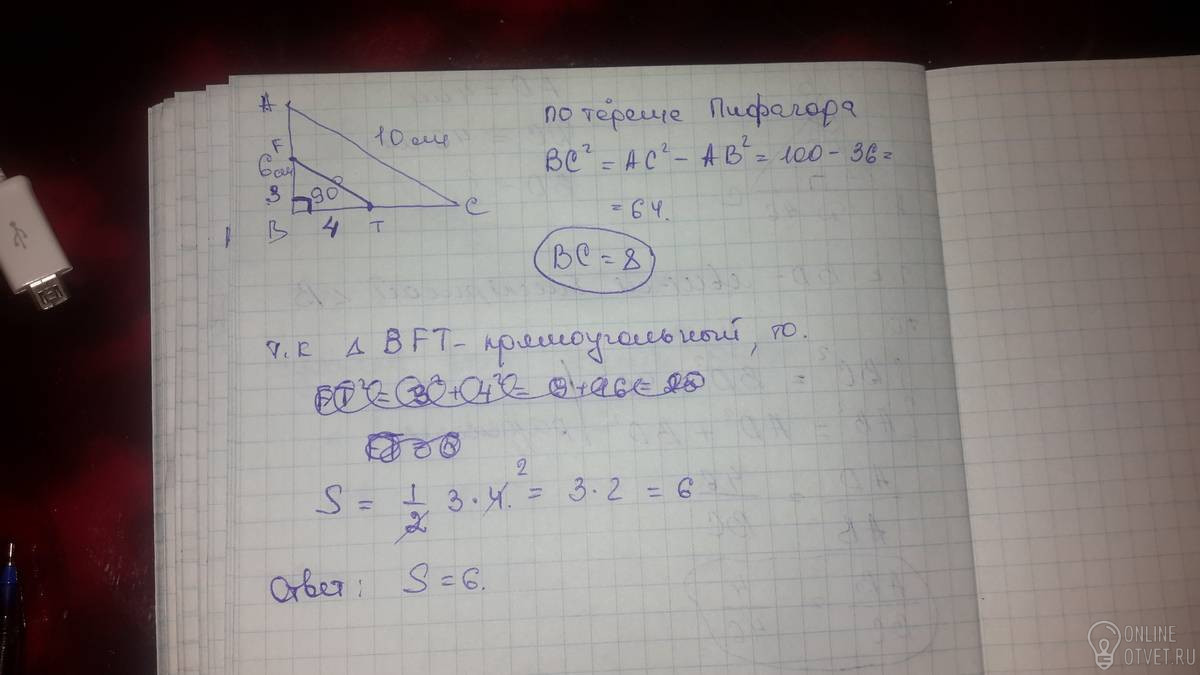 A
F
10 см
6см
3
90°
B
4
T
C
по тереме Пифагора
BC² = AC² - AB² = 100 - 36 =
= 64.
BC = 8
т.к △ BFT - прямоугольный, то.
S = 1/2 3 · 4. 2 = 3 · 2 = 6
Ответ: S = 6.
ONLINE
OTVET.RU